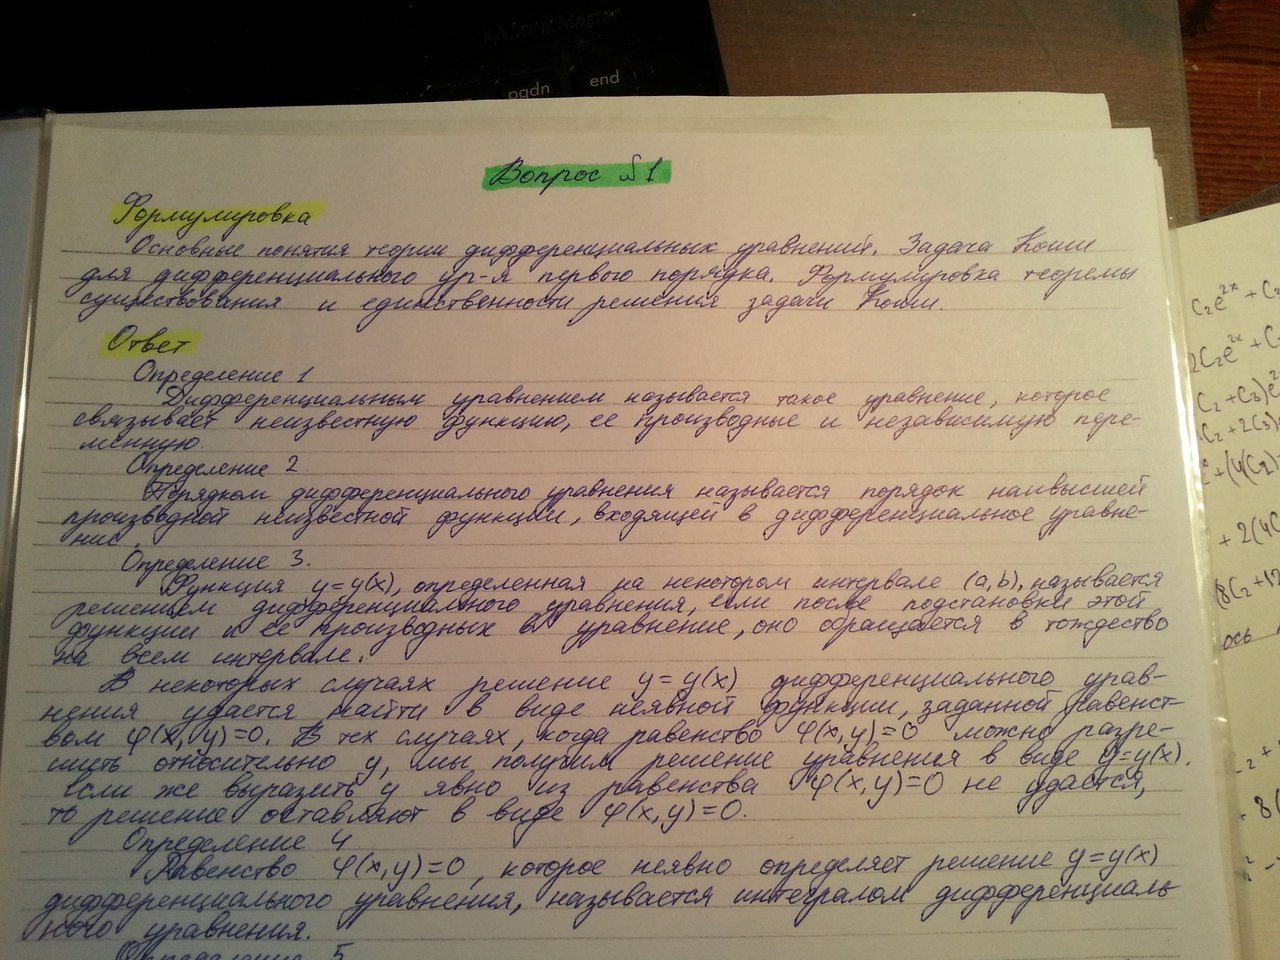 pgdn
end
Вопрос №1
Формулировка
Основные понятия теории дифференциальных уравнений. Задача Коши
для дифференциального ур-я первого порядка. Формулировка теоремы
существования и единственности решения задачи Коши.
Ответ
Определение 1
Дифференциальным уравнением называется такое уравнение, которое
связывает неизвестную функцию, ее производные и независимую пере-
менную.
Определение 2.
Порядком дифференциального уравнения называется порядок наивысшей
производной неизвестной функции, входящей в дифференциальное уравне-
ние.
Определение 3.
Функция y=y(x), определенная на некотором интервале (a,b), называется
решением дифференциального уравнения, если после подстановки этой
функции и ее производных в уравнение, оно обращается в тождество
на всем интервале.
В некоторых случаях решение y=y(x) дифференциального урав-
нения удается найти в виде неявной функции, заданной равенст-
вом φ(x,y)=0. В тех случаях, когда равенство φ(x,y)=0 можно разре-
шить относительно y, мы получим решение уравнения в виде y=y(x).
Если же выразить y явно из равенства φ(x,y)=0 не удается,
то решение оставляют в виде φ(x,y)=0.
Определение 4
Равенство φ(x,y)=0, которое неявно определяет решение y=y(x)
дифференциального уравнения, называется интегралом дифференциаль
ного уравнения.
Определение 5
C₂e²ˣ + C₂
2C₂e²ˣ + C
C₂ + C₃)e²
C₂ + 2C₃)
+(4C₂)
+ 2(4C
(8C₂+12
ось
+ 8(